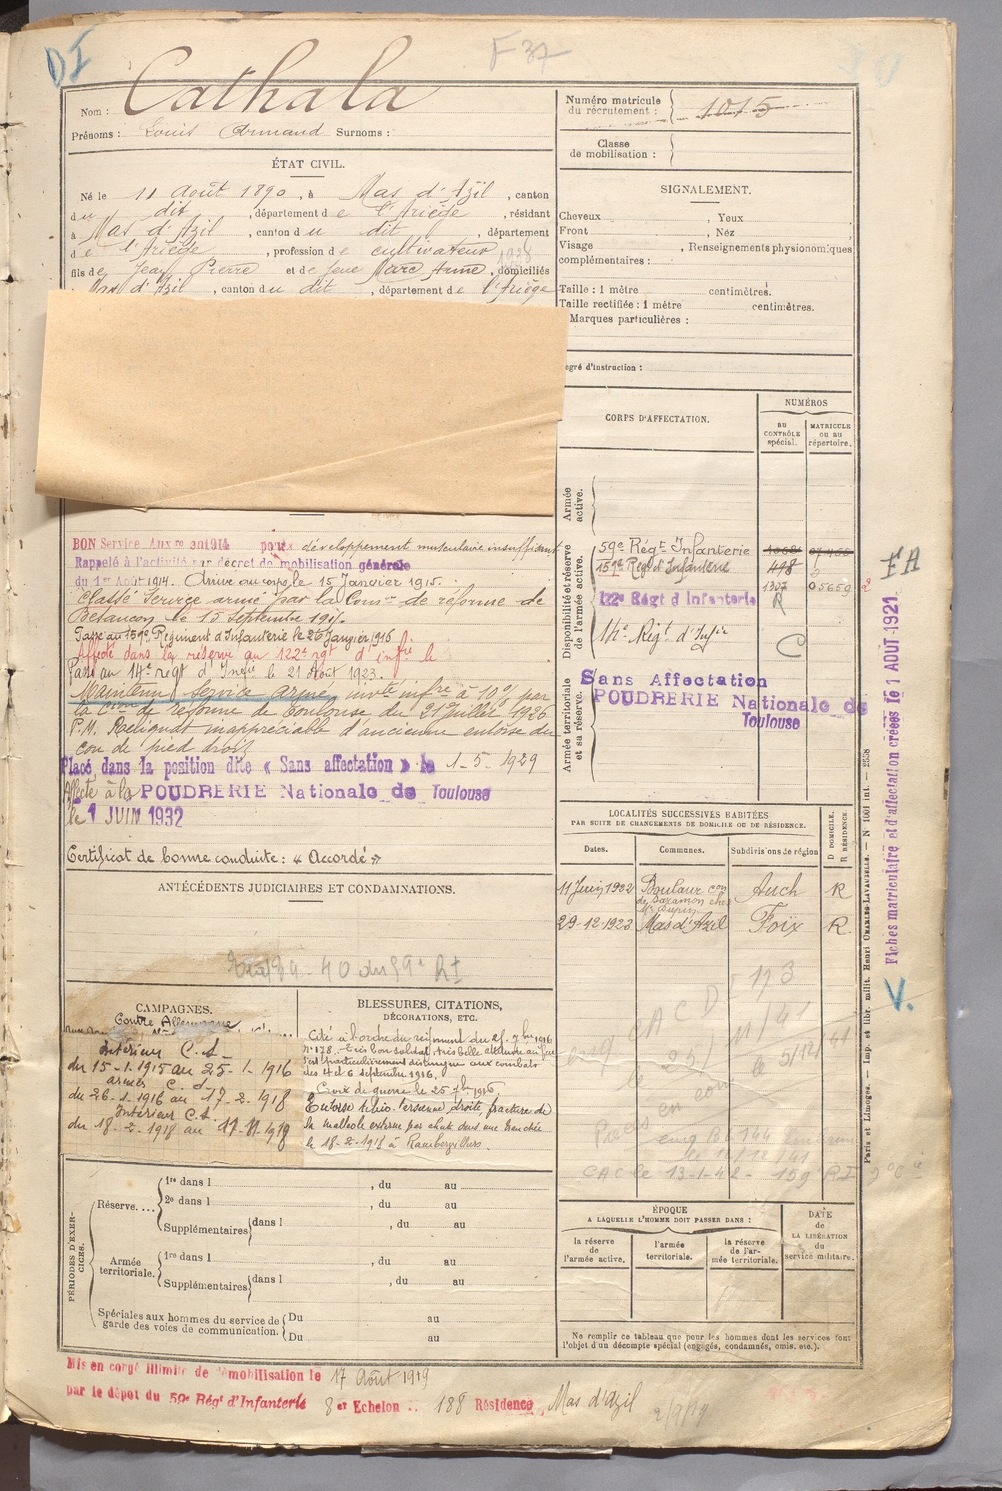 DI
F 37
Nom : Cathala
Prénoms : Louis Armand Surnoms :
ÉTAT CIVIL.
Né le 11 Août 1890, à Mas d'Azil, canton
du dit, département de l'Ariège, résidant
à Mas d'Azil, canton du dit, département
de l'Ariège, profession de cultivateur
fils de Jean Pierre et de feue Marc Anne, domiciliés
Mas d'Azil, canton du dit, département de l'Ariège
BON Service Auxre en 1914 pour développement musculaire insuffisant
Rappelé à l'activité par décret de mobilisation générale
du 1er Août 1914. Arrivé au corps le 15 Janvier 1915.
Classé Service armé par la Comon de réforme de
Besançon le 15 Septembre 191
Passé au 159e Régiment d'Infanterie le 26 Janvier 1916
Affecté dans la réserve au 122e rgt d'infrie le
Passé au 14e regt d'Infie le 21 Août 1923.
Maintenu service armé, invté infre à 10% par
la Cion de réforme de Toulouse du 21 juillet 1926
P.M. Reliquat inappréciable d'ancienne entorse du
cou de pied droit
Placé dans la position dite « Sans affectation » le 1-5-1929
Affecté à la POUDRERIE Nationale de Toulouse
le 1 JUIN 1932
Certificat de bonne conduite : « Accordé »
ANTÉCÉDENTS JUDICIAIRES ET CONDAMNATIONS.
39-40 du 59e RI
CAMPAGNES.
Contre Allemagne
Intérieur C.S
du 15-1-1915 au 25-1-1916
armées C.d
du 26-1-1916 au 17-2-1918
Intérieur C.S.
du 18-2-1918 au 17-8-1919
BLESSURES, CITATIONS,
DÉCORATIONS, ETC.
Cité à l'ordre du régiment du 25 7bre 1916
n° 178, Très bon soldat, très belle attitude au feu
s'est particulièrement distingué aux combats
des 4 et 6 septembre 1916.
Croix de guerre le 25 7bre 1916
Entorse tibio tarsienne droite, fracture de
la malléole externe par chute dans une tranchée
le 18-2-1918 à Rambervillers.
PÉRIODES D'EXERCICES.
Réserve....
1re dans l , du au
2e dans l , du au
Supplémentaires dans l , du au
Armée territoriale.
1re dans l , du au
Supplémentaires dans l , du au
Spéciales aux hommes du service de garde des voies de communication.
Du au
Du au
Mis en congé illimité de démobilisation le 17 Août 1919
par le dépôt du 59e Régt d'Infanterie 8er Echelon : 188 Résidence Mas d'Azil
Numéro matricule du recrutement : 1015
Classe de mobilisation :
SIGNALEMENT.
Cheveux , Yeux
Front , Nez
Visage , Renseignements physionomiques
complémentaires :
Taille : 1 mètre centimètres.
Taille rectifiée : 1 mètre centimètres.
Marques particulières :
egré d'instruction :
CORPS D'AFFECTATION.
NUMÉROS
AU CONTRÔLE spécial.
MATRICULE OU AU répertoire.
Armée active.
Disponibilité et réserve de l'armée active.
59e Régt Infanterie
159e Régt d'Infanterie 448
1307 05659
122e Régt d'Infanterie R
14e Régt d'Infie C
Armée territoriale et sa réserve.
Sans Affectation
POUDRERIE Nationale de
Toulouse
LOCALITÉS SUCCESSIVES HABITÉES
PAR SUITE DE CHANGEMENTS DE DOMICILE OU DE RÉSIDENCE.
Dates. Communes. Subdivisions de région D DOMICILE, R RÉSIDENCE
11 Juin 1922 Boulaur con de Saramon chez Mr Dupin Auch R
29-12-1923 Mas d'Azil Foix R
CAC le 13-1-42 - 159 RI
ÉPOQUE
A LAQUELLE L'HOMME DOIT PASSER DANS :
la réserve de l'armée active.
l'armée territoriale.
la réserve de l'armée territoriale.
DATE de LA LIBÉRATION du service militaire.
Ne remplir ce tableau que pour les hommes dont les services font
l'objet d'un décompte spécial (engagés, condamnés, omis, etc.).
FA
Fiches matriculaire et d'affectation créées le 1 AOUT 1921
V.
Paris et Limoges. — Imp. et libr. milit. Henri CHARLES-LAVAUZELLE. — N° 1001 int. — 2508